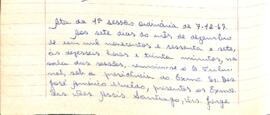 Ata da 1ª sessão ordinária de 7-12-67.
Aos sete dias do mês de dezembro
de um mil novecentos e sessenta e sete,
às dezesseis horas e trinta minutos, na
sala das sessões, reuniu-se o Tribu-
nal, sob a presidência do Exmo. Sr. Des.
José Américo, presentes os Exmos.
Des. Santiago, Jorge